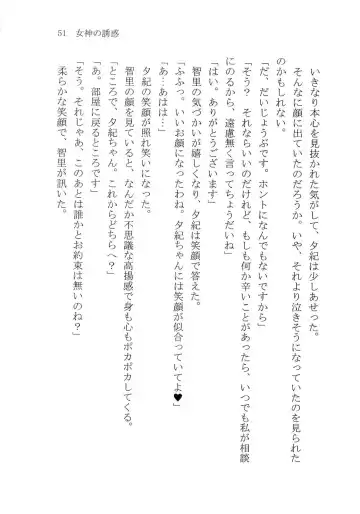 51　女神の誘惑
いきなり本心を見抜かれた気がして、夕紀は少しあせった。
そんなに顔に出ていたのだろうか。いや、それより泣きそうになっていたのを見られた
のかもしれない。
「だ、だいじょうぶです。ホントになんでもないですから」
「そう？　それならいいのだけれど、もしも何か辛いことがあったら、いつでも私が相談
にのるから、遠慮無く言ってちょうだいね」
「はい。ありがとうございます」
智里の気づかいが嬉しくなり、夕紀は笑顔で答えた。
「ふふっ。いいお顔になったわね。夕紀ちゃんには笑顔が似合っていてよ♥」
「あ…あはは…」
夕紀の笑顔が照れ笑いになった。
智里の笑顔を見ていると、なんだか不思議な高揚感で身も心もポカポカしてくる。
「ところで、夕紀ちゃん。これからどちらへ？」
「あ。部屋に戻るところです」
「そう。それじゃあ、このあとは誰かとお約束は無いのね？」
柔らかな笑顔で、智里が訊いた。